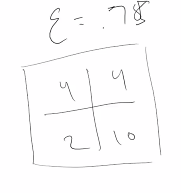 ε = .78
4 4
2 10